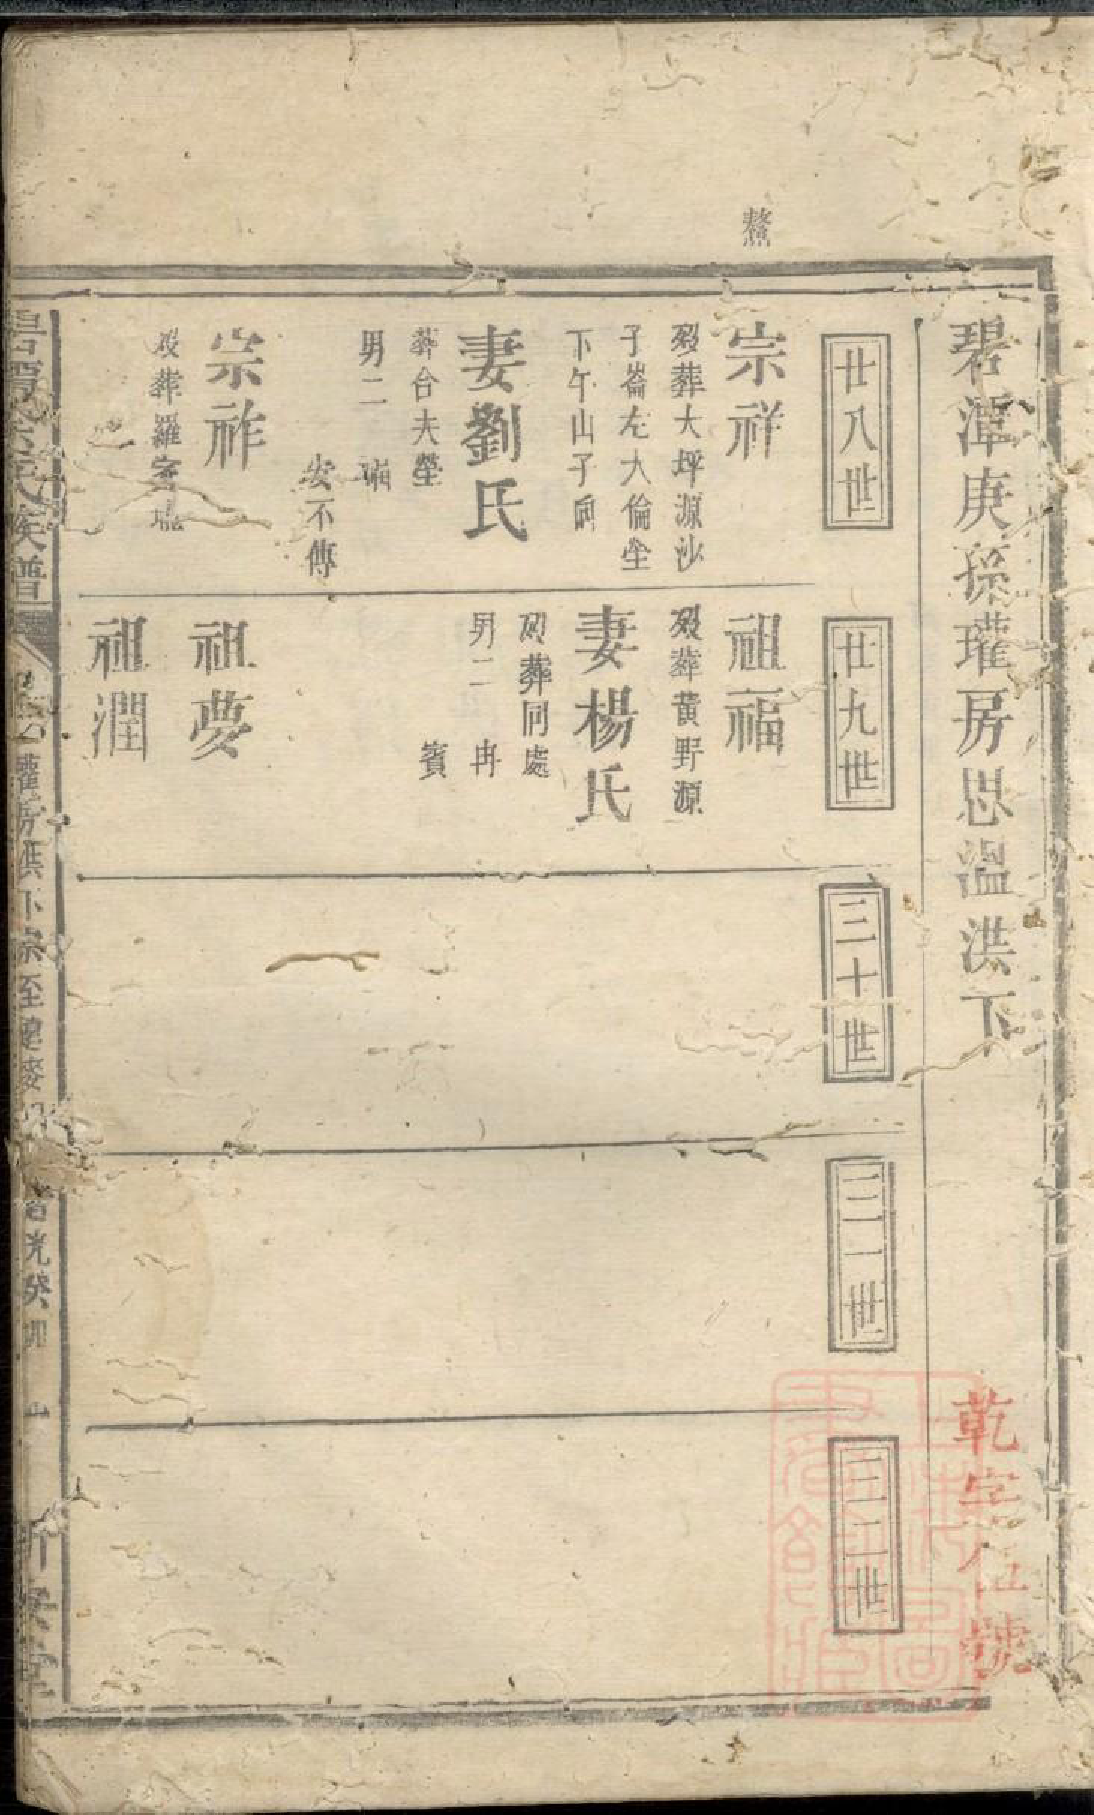 鰲
碧潭庚孫瓘房思溫洪下
乾字伍號
廿八世
宗祥
歿葬大坪源沙
子崙左大倫坐
下午山子向
妻劉氏
葬合夫塋
男二 瑞
安不傳
宗祚
歿葬羅家壠
廿九世
祖福
歿葬黃野源
妻楊氏
歿葬同處
男二 冉
賓
祖夢
祖潤
三十世
三一世
三二世
氏族譜
瓘房洪下宗至
道光癸卯
新安堂